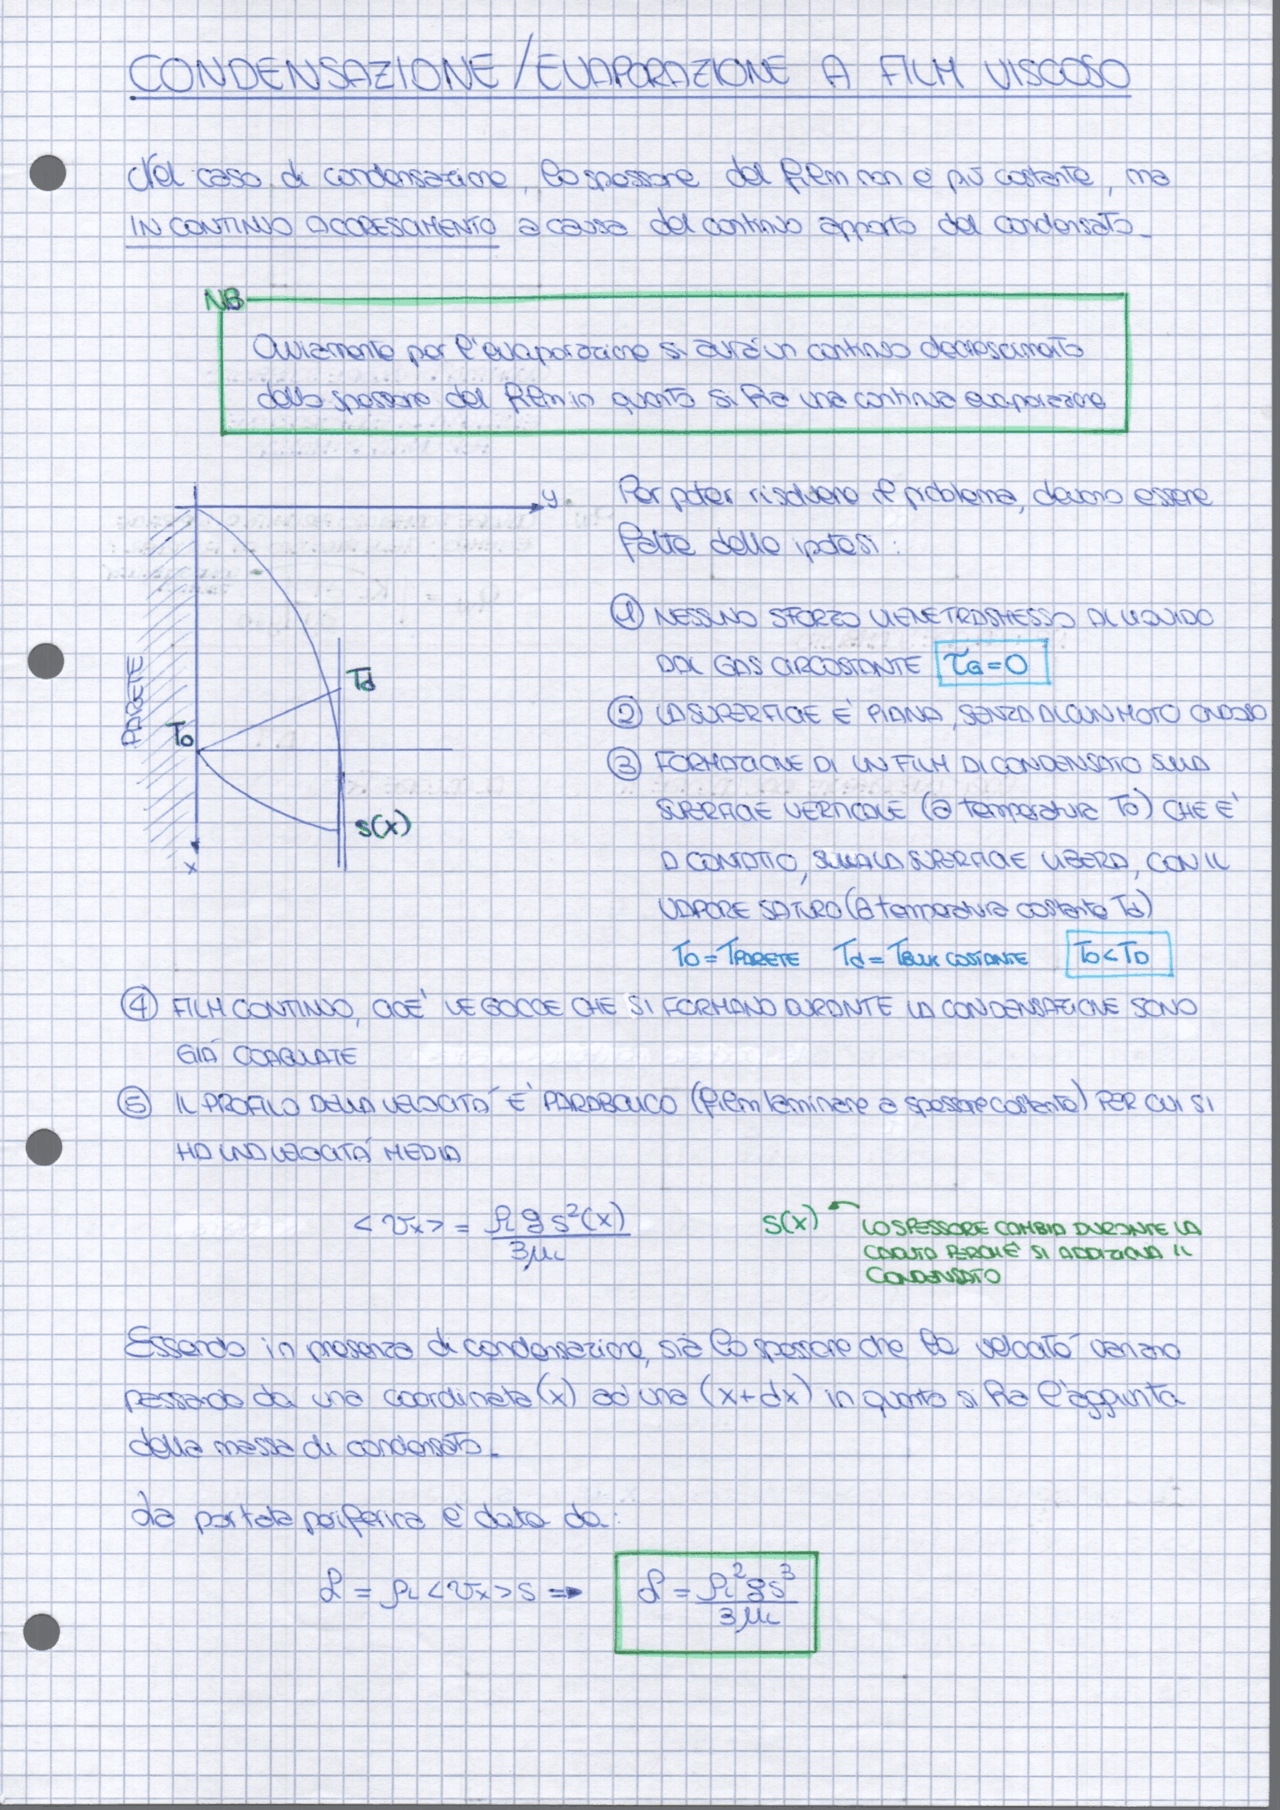 CONDENSAZIONE/EVAPORAZIONE A FILM VISCOSO
Nel caso di condensazione, lo spessore del film non e' più costante, ma
IN CONTINUO ACCRESCIMENTO a causa del continuo apporto del condensato.
NB
Ovviamente per l'evaporazione si avrà un continuo decrescimento
dello spessore del film in quanto si ha una continua evaporazione
y
PARETE
T0
Td
s(x)
x
Per poter risolvere il problema, devono essere
fatte delle ipotesi:
① NESSUNO SFORZO VIENE TRASMESSO AL LIQUIDO
DAL GAS CIRCOSTANTE τG=0
② LA SUPERFICIE E' PIANA, SENZA ALCUN MOTO ONDOSO
③ FORMAZIONE DI UN FILM DI CONDENSATO SULLA
SUPERFICIE VERTICALE (a temperatura T0) CHE E'
A CONTATTO, SULLA SUPERFICIE LIBERA, CON IL
VAPORE SATURO (a temperatura costante Td)
T0 = TPARETE Td = TBULK COSTANTE T0<TD
④ FILM CONTINUO, CIOE' LE GOCCE CHE SI FORMANO DURANTE LA CONDENSAZIONE SONO
GIÀ COAGULATE
⑤ IL PROFILO DELLA VELOCITÀ E' PARABOLICO (film laminare a spessore costante) PER CUI SI
HA UNA VELOCITÀ MEDIA
<vx> = ρL g s²(x) / 3μL
s(x) LO SPESSORE CAMBIA DURANTE LA
CADUTA PERCHE' SI ADDIZIONA IL
CONDENSATO
Essendo in presenza di condensazione, sia lo spessore che la velocità variano
passando da una coordinata (x) ad una (x+dx) in quanto si ha l'aggiunta
della massa di condensato.
La portata periferica e' data da:
ℒ = ρL <vx> s ⇒ ℒ = ρL² g s³ / 3μL